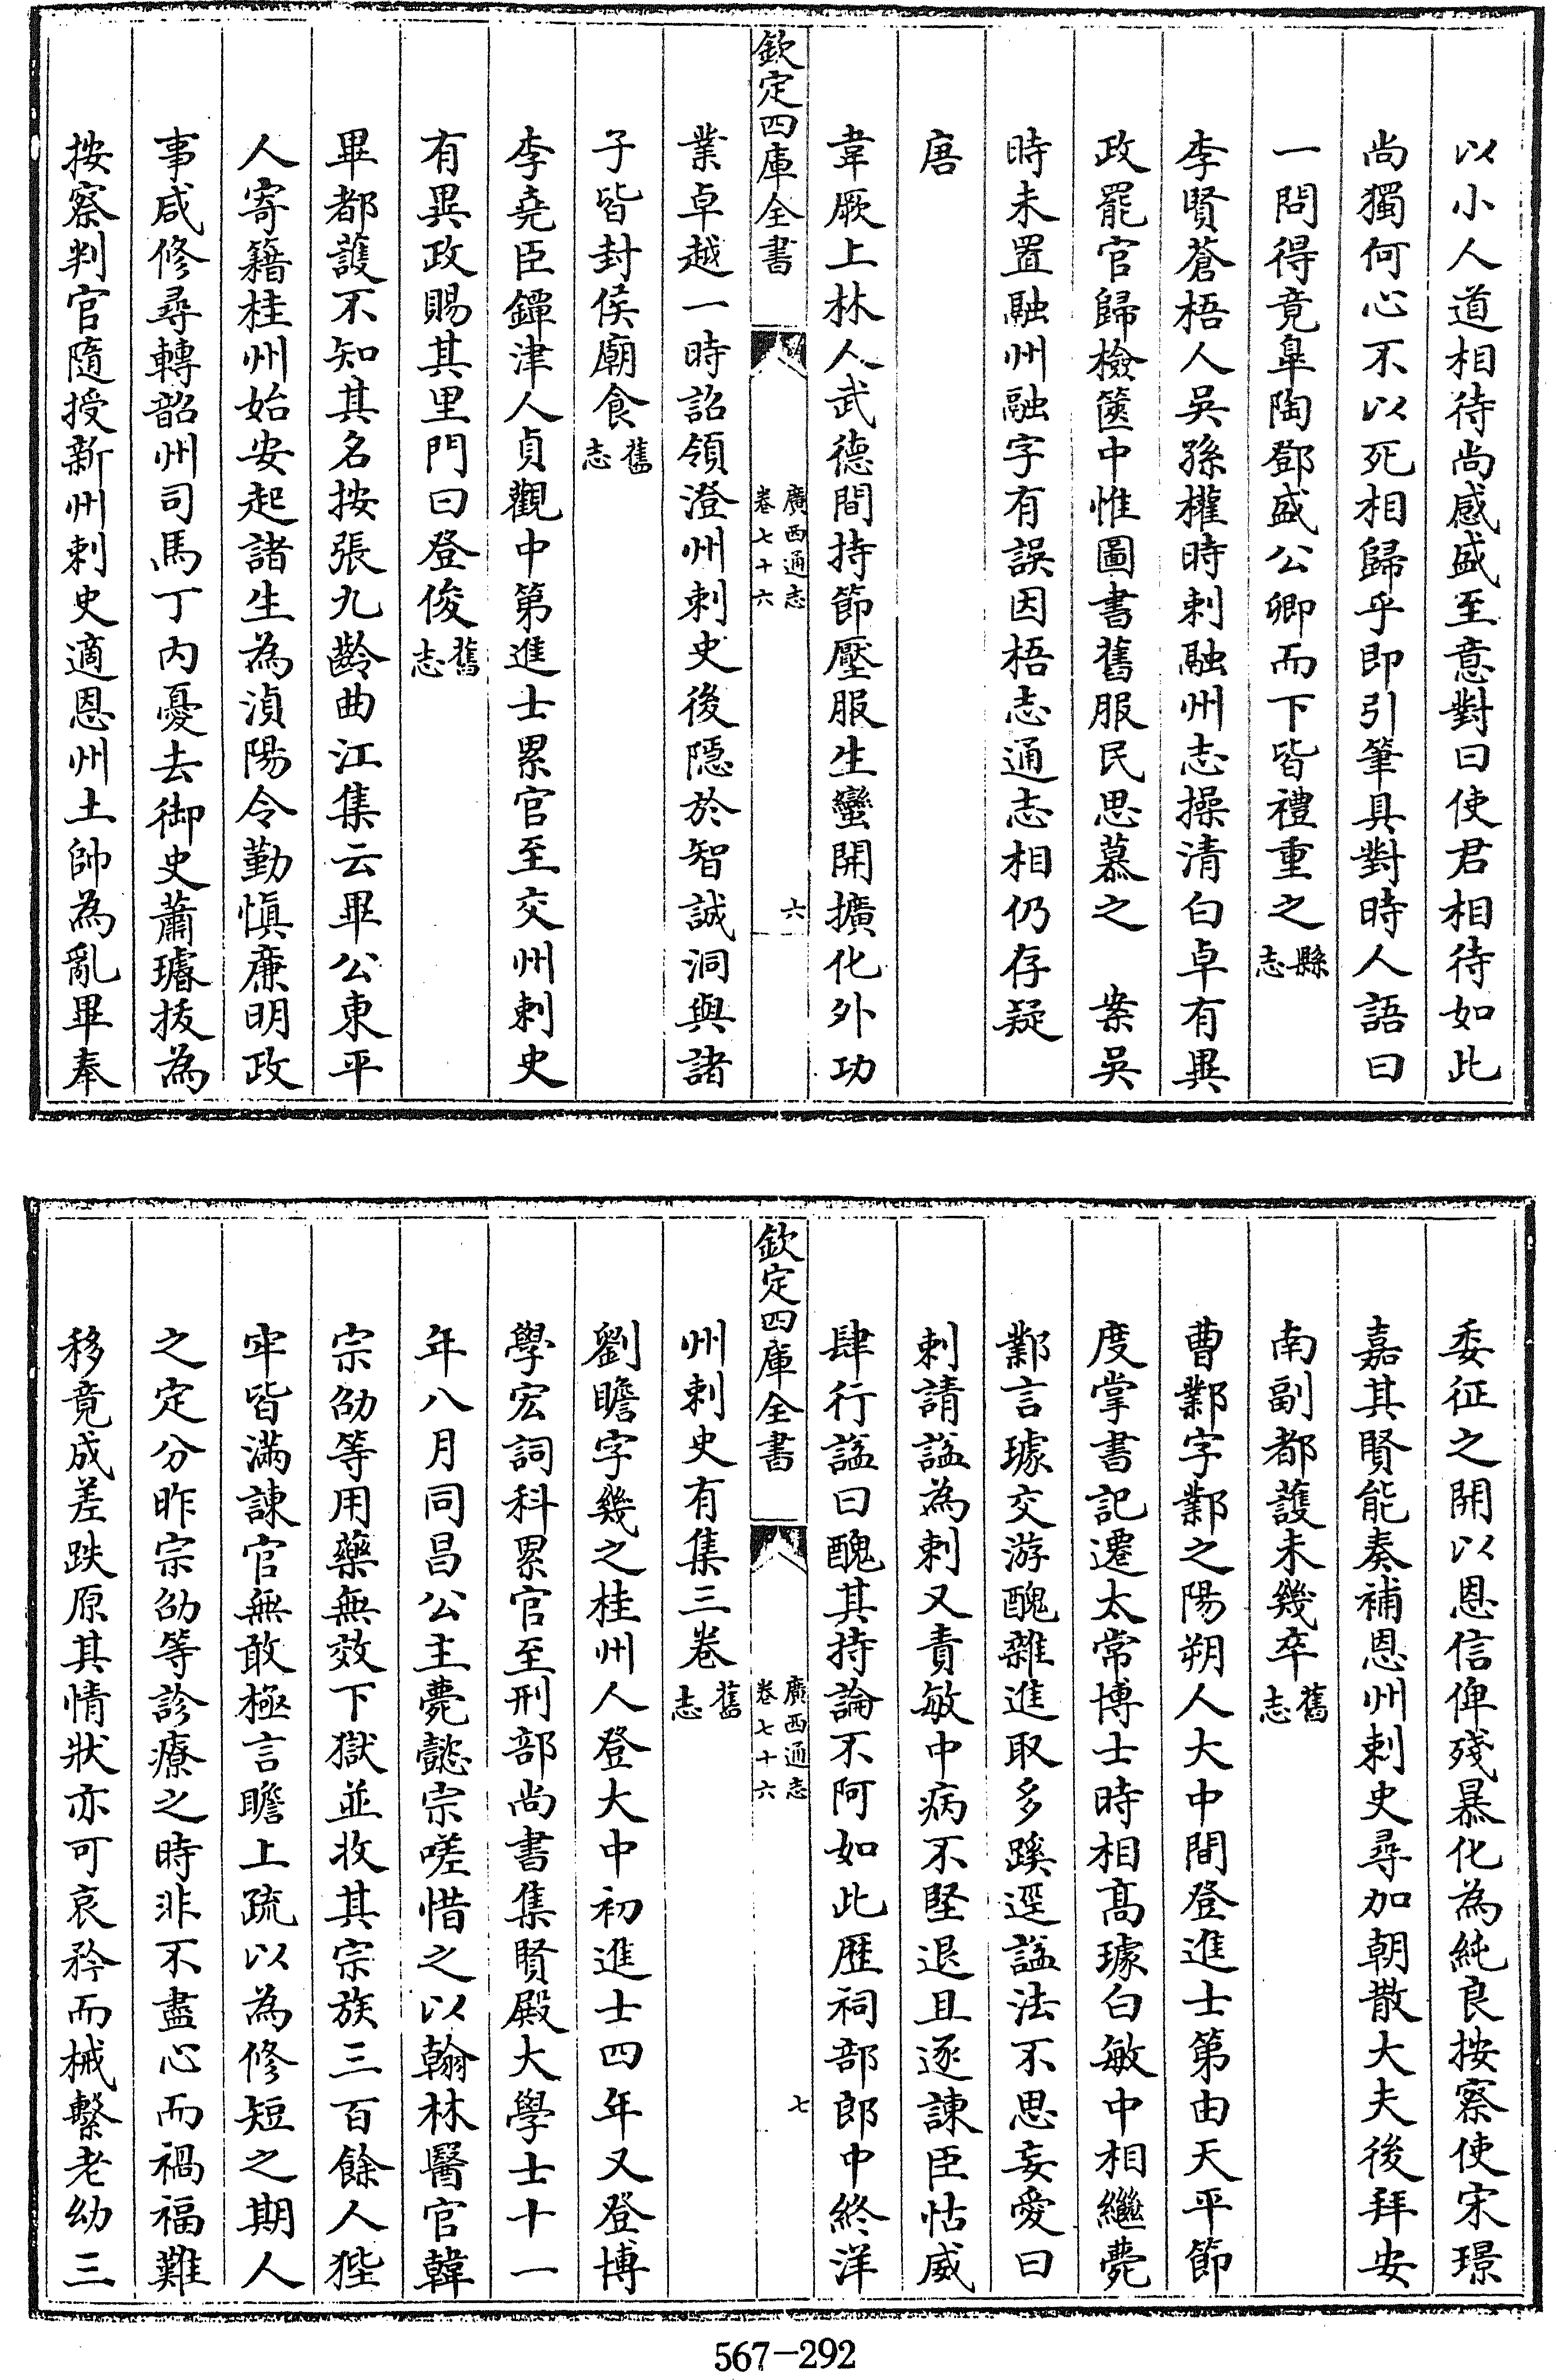 以小人道相待尚感盛至意對曰使君相待如此
尚獨何心不以死相歸乎即引筆具對時人語曰
一問得竟臯陶鄧盛公卿而下皆禮重之縣志
李賢蒼梧人吳孫權時刺融州志操清白卓有異
政罷官歸檢篋中惟圖書舊服民思慕之　案吳
時未置融州融字有誤因梧志通志相仍存疑
唐
韋厥上林人武德間持節壓服生蠻開擴化外功
欽定四庫全書
廣西通志
卷七十六
六
業卓越一時詔領澄州刺史後隱於智誠洞與諸
子皆封侯廟食舊志
李堯臣鐔津人貞觀中第進士累官至交州刺史
有異政賜其里門曰登俊舊志
畢都護不知其名按張九齡曲江集云畢公東平
人寄籍桂州始安起諸生為湞陽令勤慎廉明政
事咸修尋轉韶州司馬丁內憂去御史蕭璿拔為
按察判官隨授新州刺史適恩州土帥為亂畢奉
委征之開以恩信俾殘暴化為純良按察使宋璟
嘉其賢能奏補恩州刺史尋加朝散大夫後拜安
南副都護未幾卒舊志
曹鄴字鄴之陽朔人大中間登進士第由天平節
度掌書記遷太常博士時相高璩白敏中相繼薨
鄴言璩交游醜雜進取多蹊逕諡法不思妄愛曰
刺請諡為刺又責敏中病不堅退且逐諫臣怙威
肆行諡曰醜其持論不阿如此歷祠部郎中終洋
欽定四庫全書
廣西通志
卷七十六
七
州刺史有集三卷舊志
劉瞻字幾之桂州人登大中初進士四年又登博
學宏詞科累官至刑部尚書集賢殿大學士十一
年八月同昌公主薨懿宗嗟惜之以翰林醫官韓
宗劭等用藥無效下獄並收其宗族三百餘人狴
牢皆滿諫官無敢極言瞻上疏以為修短之期人
之定分昨宗劭等診療之時非不盡心而禍福難
移竟成差跌原其情狀亦可哀矜而械繫老幼三
567-292